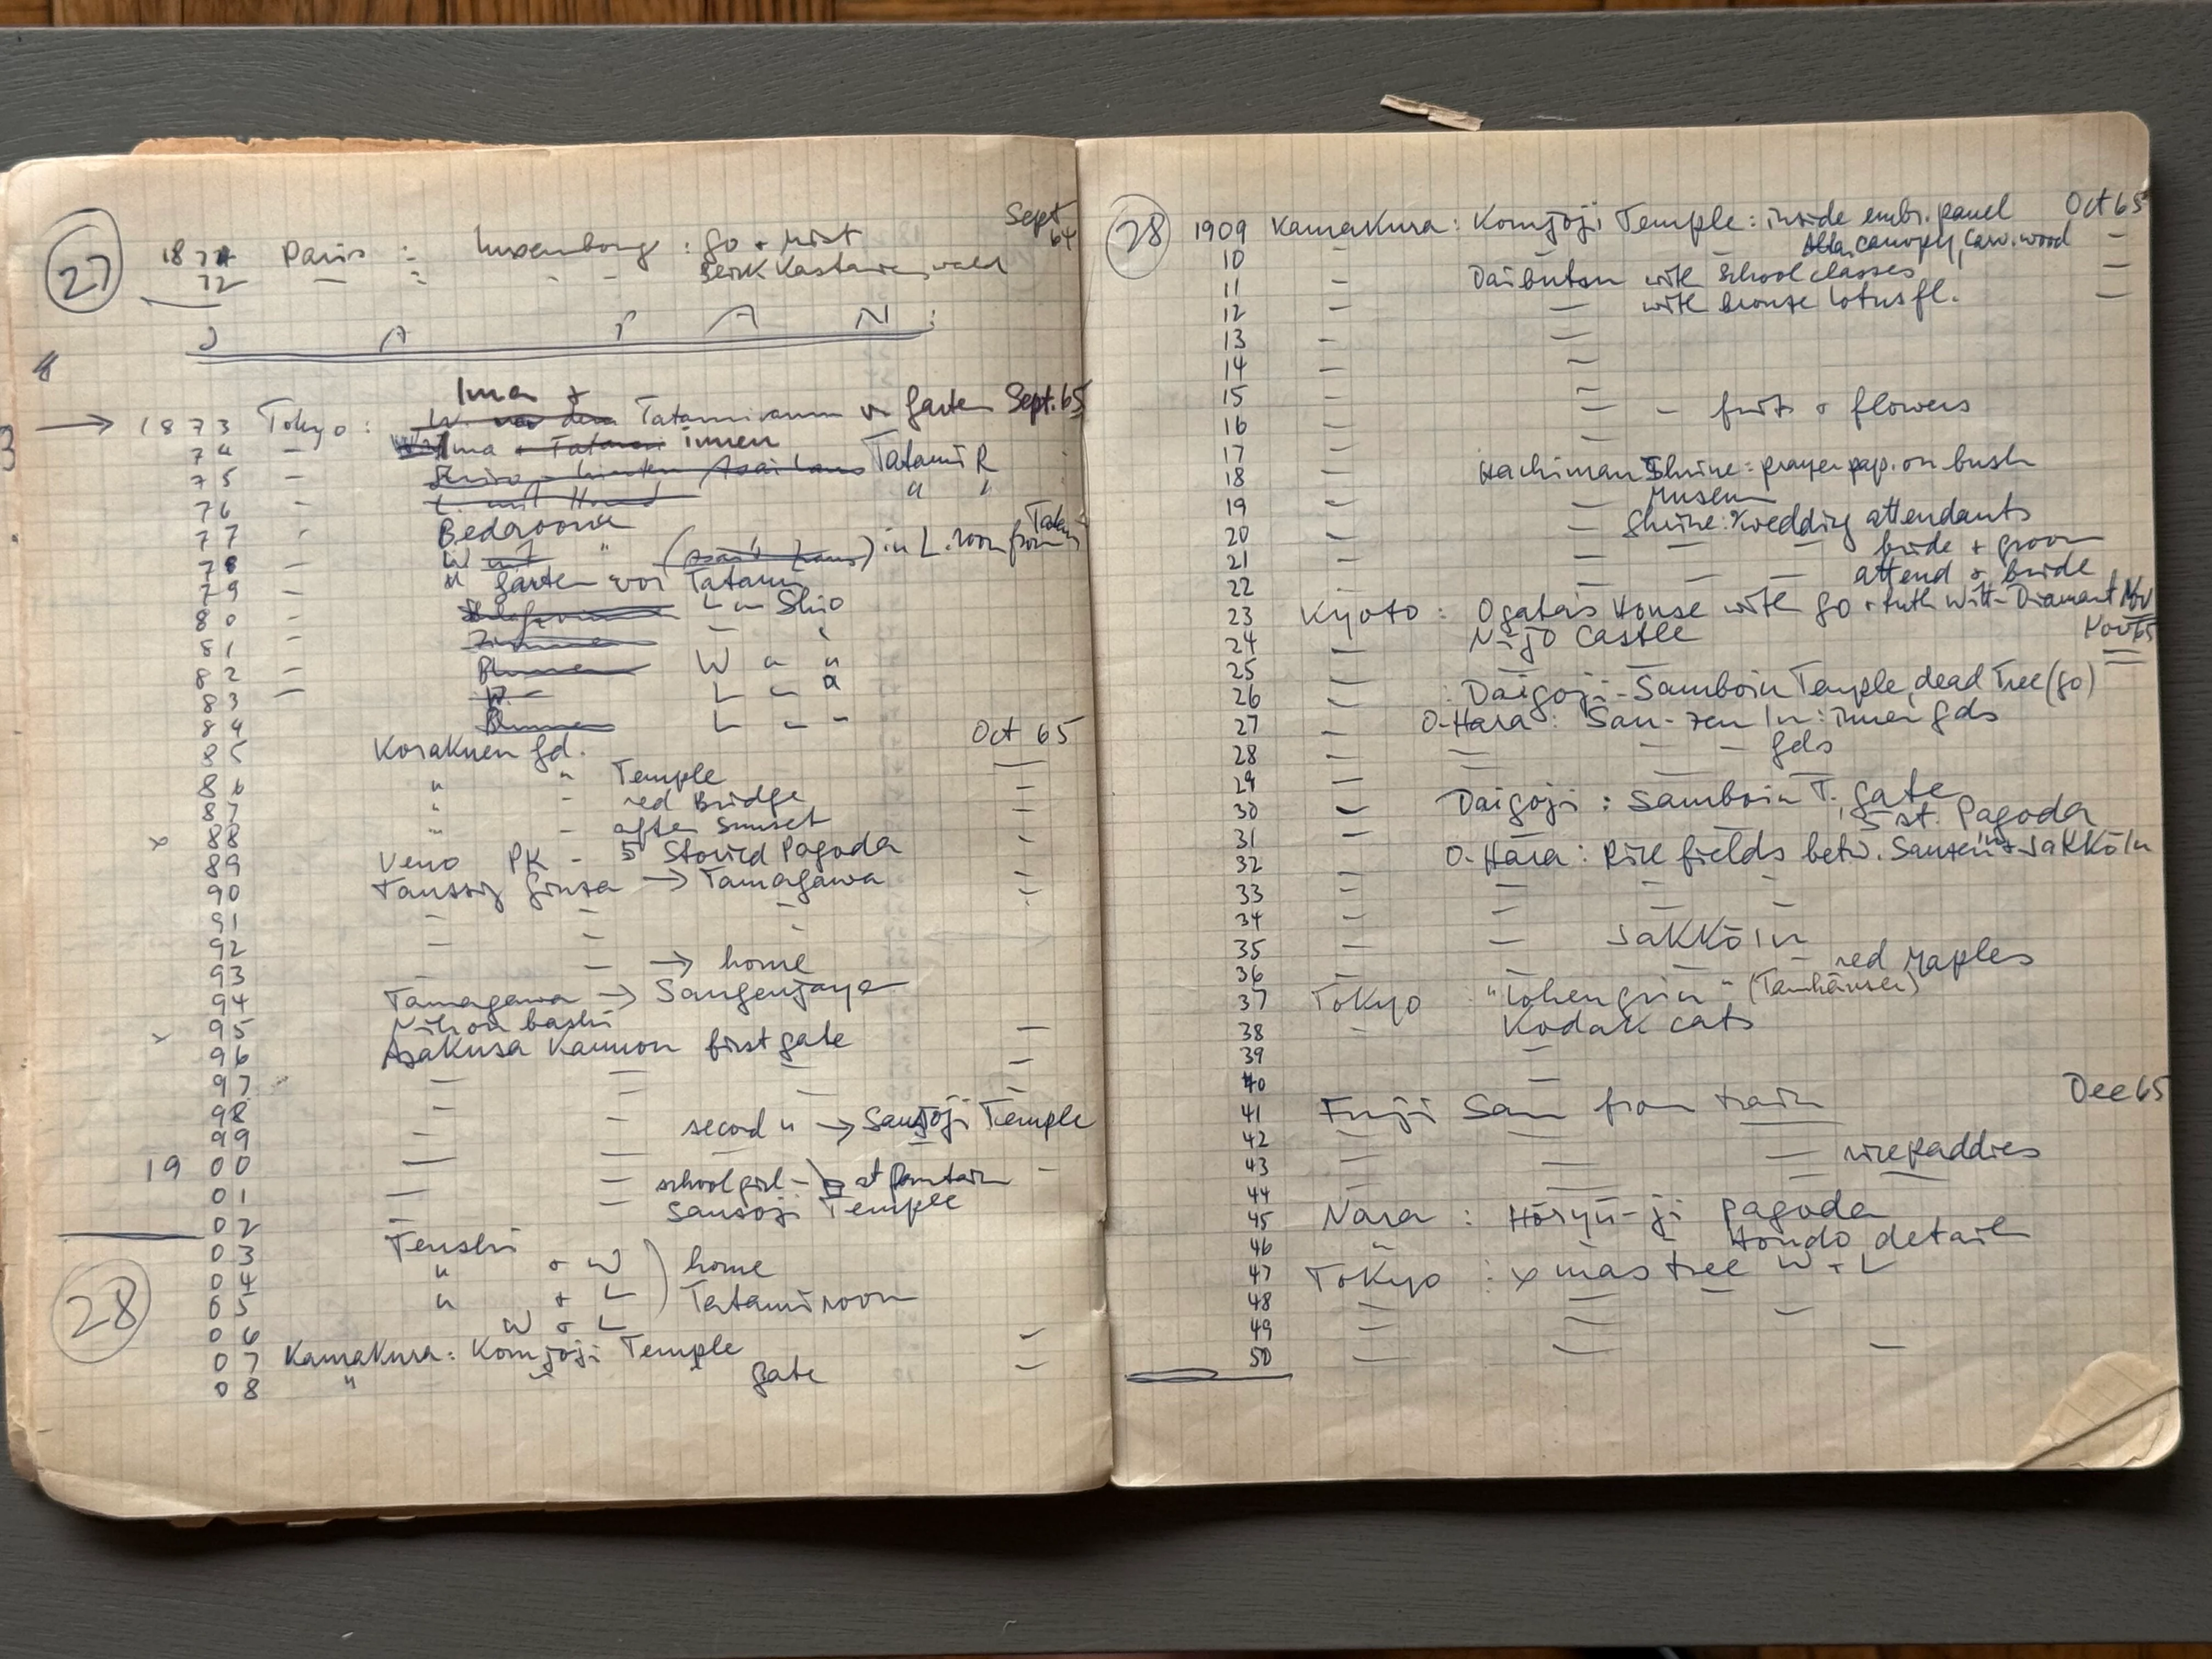 27
1871 Paris : Luxembourg : go + mist Sept 64
72 — : - -
J A P A N :
→ 1873 Tokyo : Ima + W. vor dem Tatamiraum v. Garten Sept. 65
74 - Ima + Tatami innen
75 - Tatami R
76 - L. mit Hund " "
77 - Bedroom
78 - W mit " (Asai's Haus) in L. room from Tatami
79 - " Garten vor Tatami
80 - L — Shio
81 - — "
82 - Blumen W — "
83 - W - L — "
84 Blumen L — -
85 Korakuen gd. Oct 65
86 " " Temple —
87 " - red Bridge —
x 88 " - after sunset —
89 Ueno PK - 5 Storied Pagoda -
90 Ginza → Tamagawa —
91 - - -
92 - - -
93 - - → home
94 Tamagawa → Sangenjaya
x 95 Nihon bashi
96 Asakusa Kannon first gate —
97 — — — —
98 - - - -
99 — — second " → Sansoji Temple
1900 — — —
01 — — school girl - at fountain -
02 — — Sansoji Temple
28
03 Tenshi
04 " + W ) home
05 " + L ) Tatami room
06 W + L
07 Kamakura : Komjoji Temple —
08 " " gate —
28 1909 Kamakura : Komjoji Temple : inside embr. panel Oct 65
10 - Alta. canopy, carv. wood —
11 - Daibutsu with school classes —
12 - — with bronze lotus fl. —
13 - —
14 - —
15 - —
16 - — - fruit + flowers
17 - —
18 - Hachiman Shrine : prayer pap. on bush
19 - — Museum
20 - — Shrine : wedding attendants
21 - — — — bride + groom
22 — — — attend + bride
23 Kyoto : Ogata's House with go + Ruth Witt-Diamant Nov
24 — Nijo Castle Nov 65
25 — — —
26 — : Daigoji - Samboin Temple, dead Tree (go)
27 — O-Hara : San-zen In : inner gds
28 — — — — gds
29 — — —
30 — Daigoji : Samboin T. gate
31 — 5 st. Pagoda
32 — O-Hara : Rice fields betw. Sanzen in + Jakkō In
33 — — — -
34 — — — —
35 — — Jakkō In
36 — — — - red Maples
37 Tokyo : "Lohengrin" (Tannhäuser)
38 - Kodak cats
39 —
40 —
41 Fuji San from train Dec 65
42 — — —
43 — — — rice paddies
44 — —
45 Nara : Hōryū-ji pagoda
46 " - Hondo detail
47 Tokyo : xmas tree W + L
48 — — — —
49 — —
50 — — —